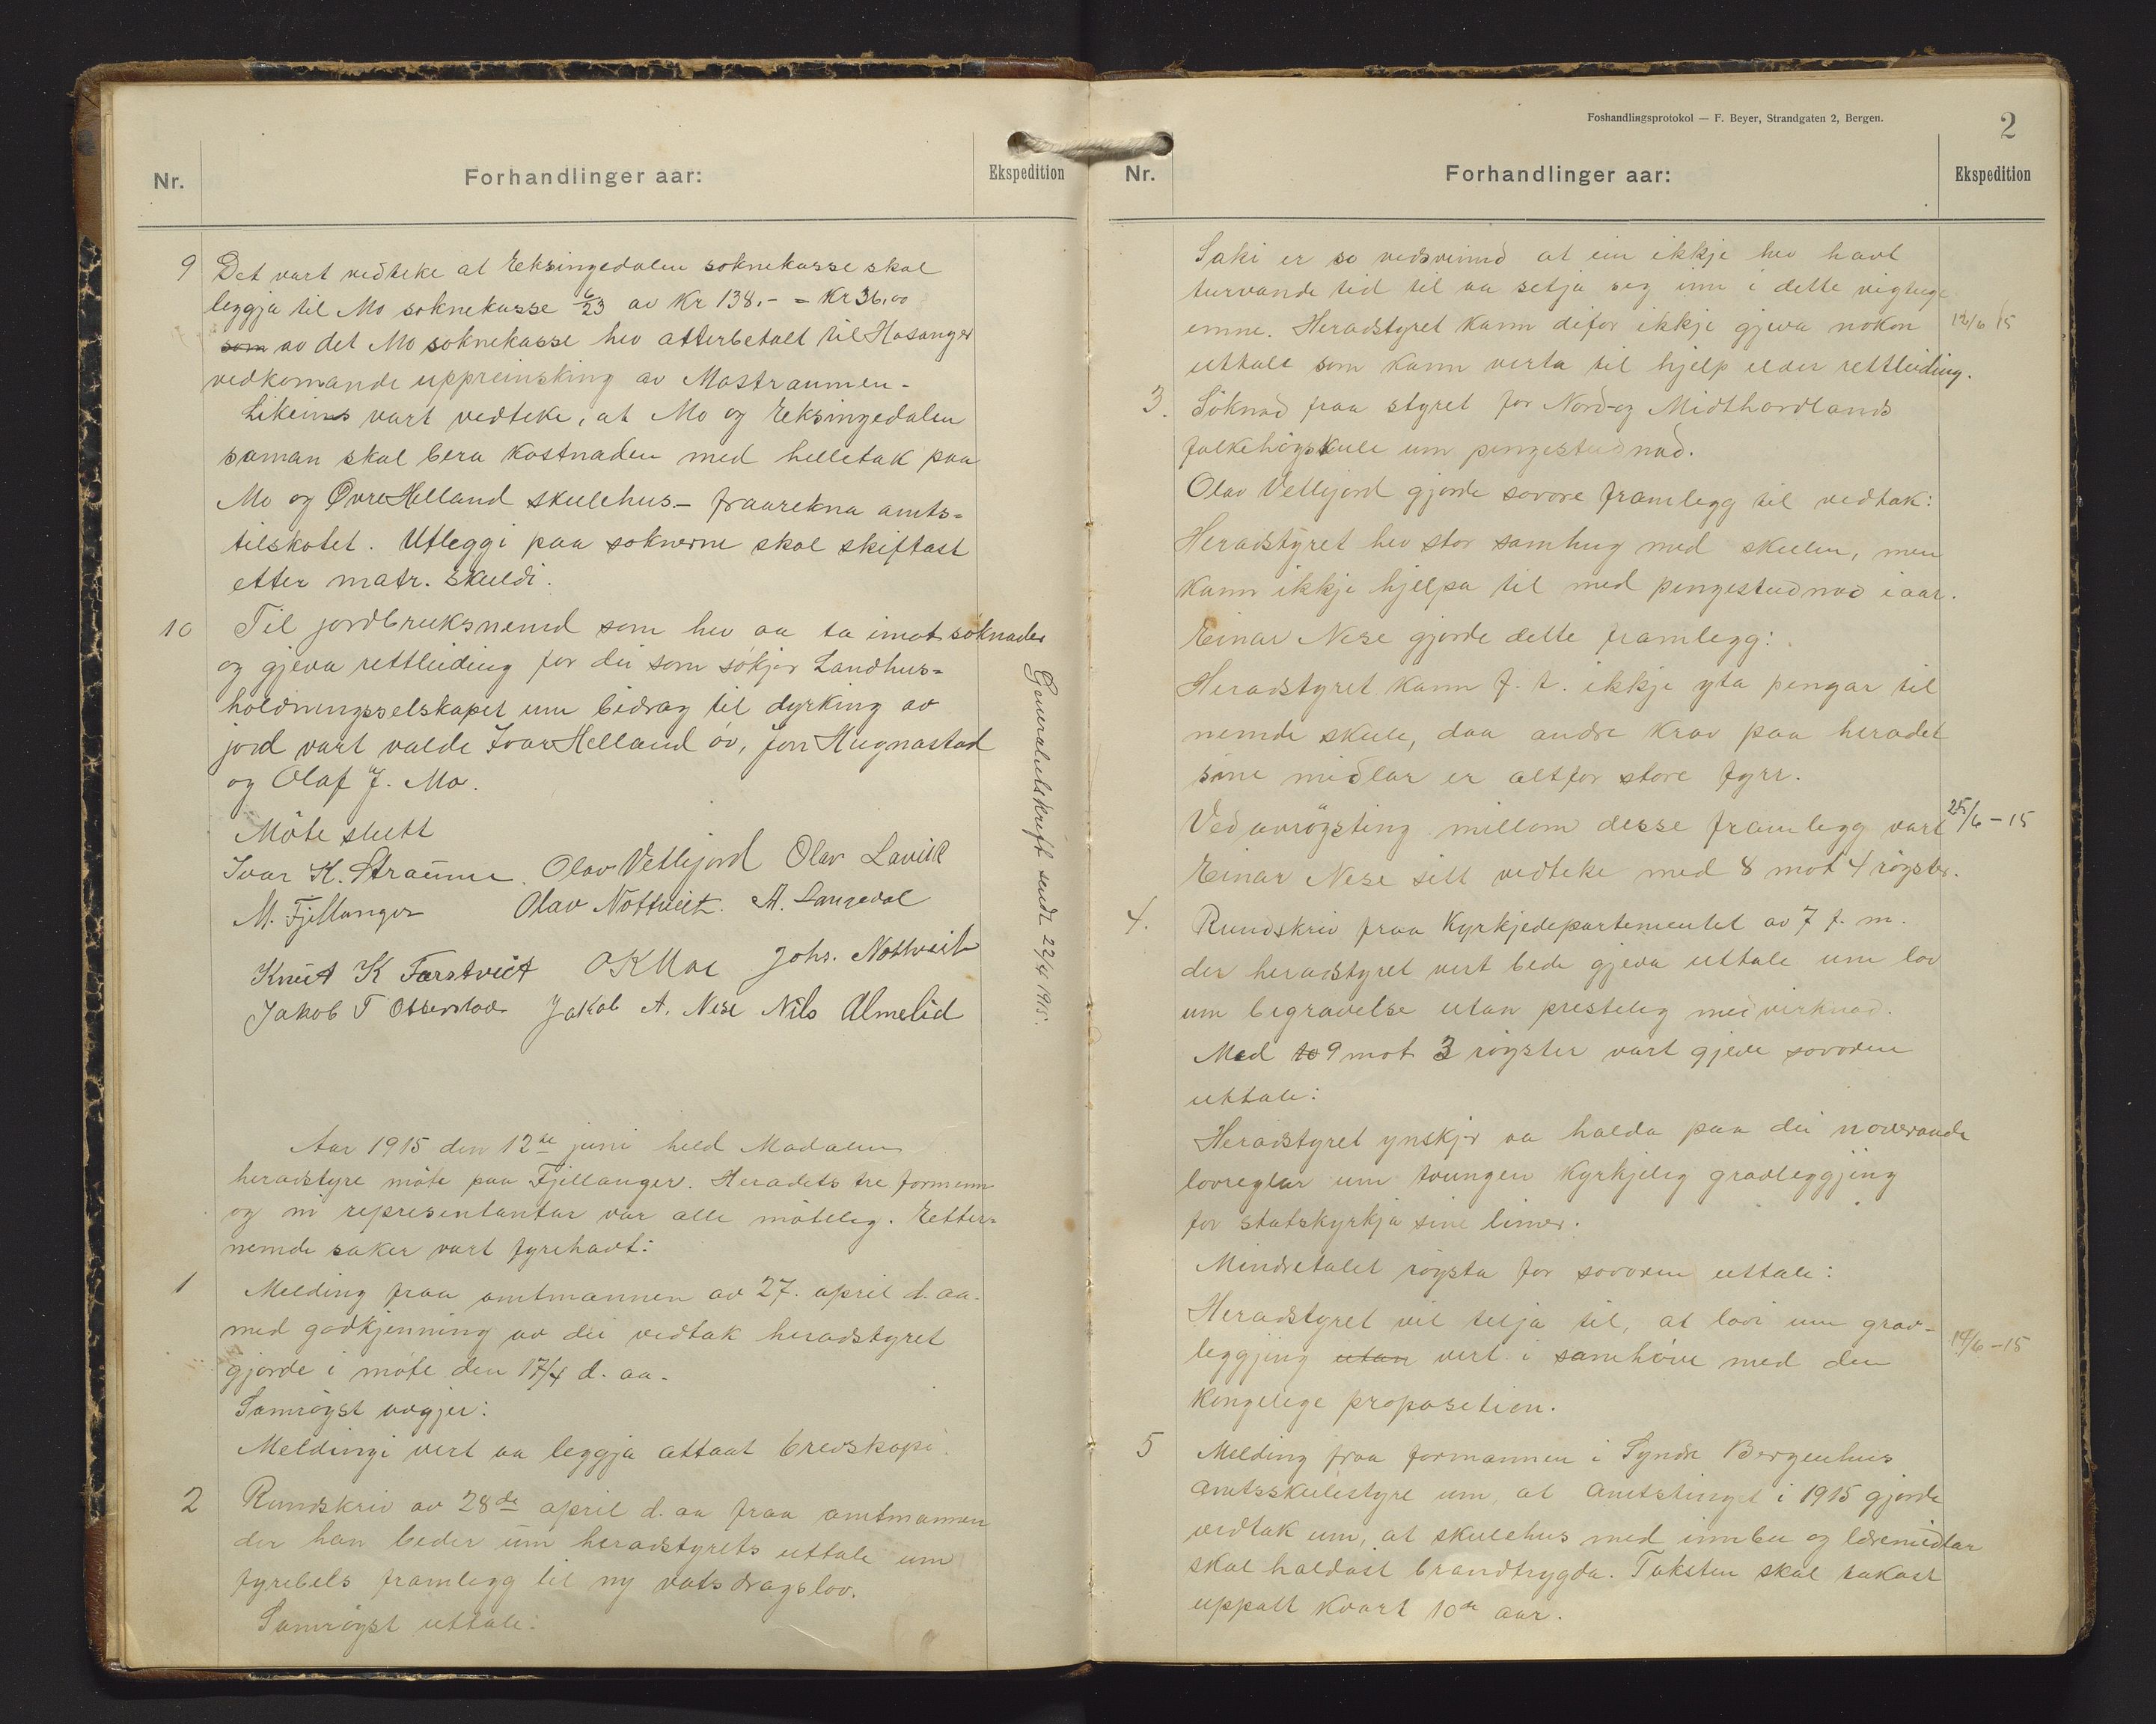 Nr.
Forhandlinger aar:
Ekspedition
9 Det vart vedteke at Eksingedalen soknekasse skal
leggja til Mo soknekasse 6/23 av Kr 138.- = Kr 36.00
som av det Mo soknekasse hev atterbetalt til Hosanger
vedkomande uppreinsking av Mostraumen.
Likeins vart vedteke, at Mo og Eksingedalen
saman skal bera kostnaden med helletak paa
Mo og Øvre Helland skulehus - fraarekna amts=
tilskotet. Utleggi paa soknerne skal skiftast
etter matr. skuldi.
10 Til jordbruksnemd som hev aa ta imot söknader
og gjeva rettleiding for dei som sökjer Landhus=
holdningsselskapet um bidrag til dyrking av
jord vart valde Ivar Helland öv, Jon Hugnastad
og Olaf J. Mo.
Möte slutt
Ivar K. Straume. Olav Vetlejord Olav Lavik
M. Fjellanger Olav Nottveit. A. Langedal
Knut K Farstveit O K Moe Johs. Nottveit
Jakob T Otterstad Jakob A. Nese Nils Almelid
Generalutskrift sendt 22/4 1915.
Aar 1915 den 12te juni held Modalen
heradstyre möte paa Fjellanger. Heradets tre formenn
og ni representantar var alle möteleg. Etter=
nemde saker vart fyrehavt:
1 Melding fraa amtmannen av 27. april d. aa.
med godkjenning av dei vedtak heradstyret
gjorde i möte den 17/4 d. aa.
Samröyst vogjer:
Meldingi vert aa leggja attaat brevskapi.
2 Rundskriv av 28de april d. aa fraa amtmannen
der han beder um heradstyrets uttale um
fyrebels framlegg til ny vatsdragslov.
Samröyst uttale:
Foshandlingsprotokol — F. Beyer, Strandgaten 2, Bergen.
2
Nr.
Forhandlinger aar:
Ekspedition
Saki er so vidsvinnd at ein ikkje hev havt
turvande tid til aa setja seg inn i dette vigtuge
emne. Heradstyret kann difor ikkje gjeva nokon 12/6 15
uttale som kann verta til hjelp elder rettleiding.
3. Söknad fraa styret for Nord- og Midthordlands
folkehögskule um pengestudnad.
Olav Vetlejord gjorde sovore framlegg til vedtak:
Heradstyret hev stor samhug med skulen, men
kann ikkje hjelpa til med pengestudnad i aar.
Einar Nese gjorde dette framlegg:
Heradstyret kann f. t. ikkje yta pengar til
nemde skule, daa andre krav paa heradet
sine midlar er altfor store fyrr.
Ved avröysting millom desse framlegg vart 25/6-15
Einar Nese sitt vedteke med 8 mot 4 röyster.
4. Rundskriv fraa Kyrkjedepartementet av 7 f. m.
der heradstyret vert bede gjeva uttale um lov
um begravelse utan presteleg medvirknad.
Med 10 9 mot 3 röyster vart gjeve sovoren
uttale:
Heradstyret ynskjer aa halda paa dei noverande
lovreglar um tvungen kyrkjeleg gravleggjing
for statskyrkja sine limer.
Mindretalet röysta for sovoren uttale:
Heradstyret vil telja til, at lovi um grav-
leggjing utan vert i samhöve med den 14/6-15
kongelege proposition.
5 Melding fraa formannen i Syndre Bergenhus
amtsskulestyre um, at amtstinget i 1915 gjorde
vedtak um, at skulehus med innbu og læremidlar
skal haldast brandtrygda. Taksten skal takast
uppatt kvart 10de aar.